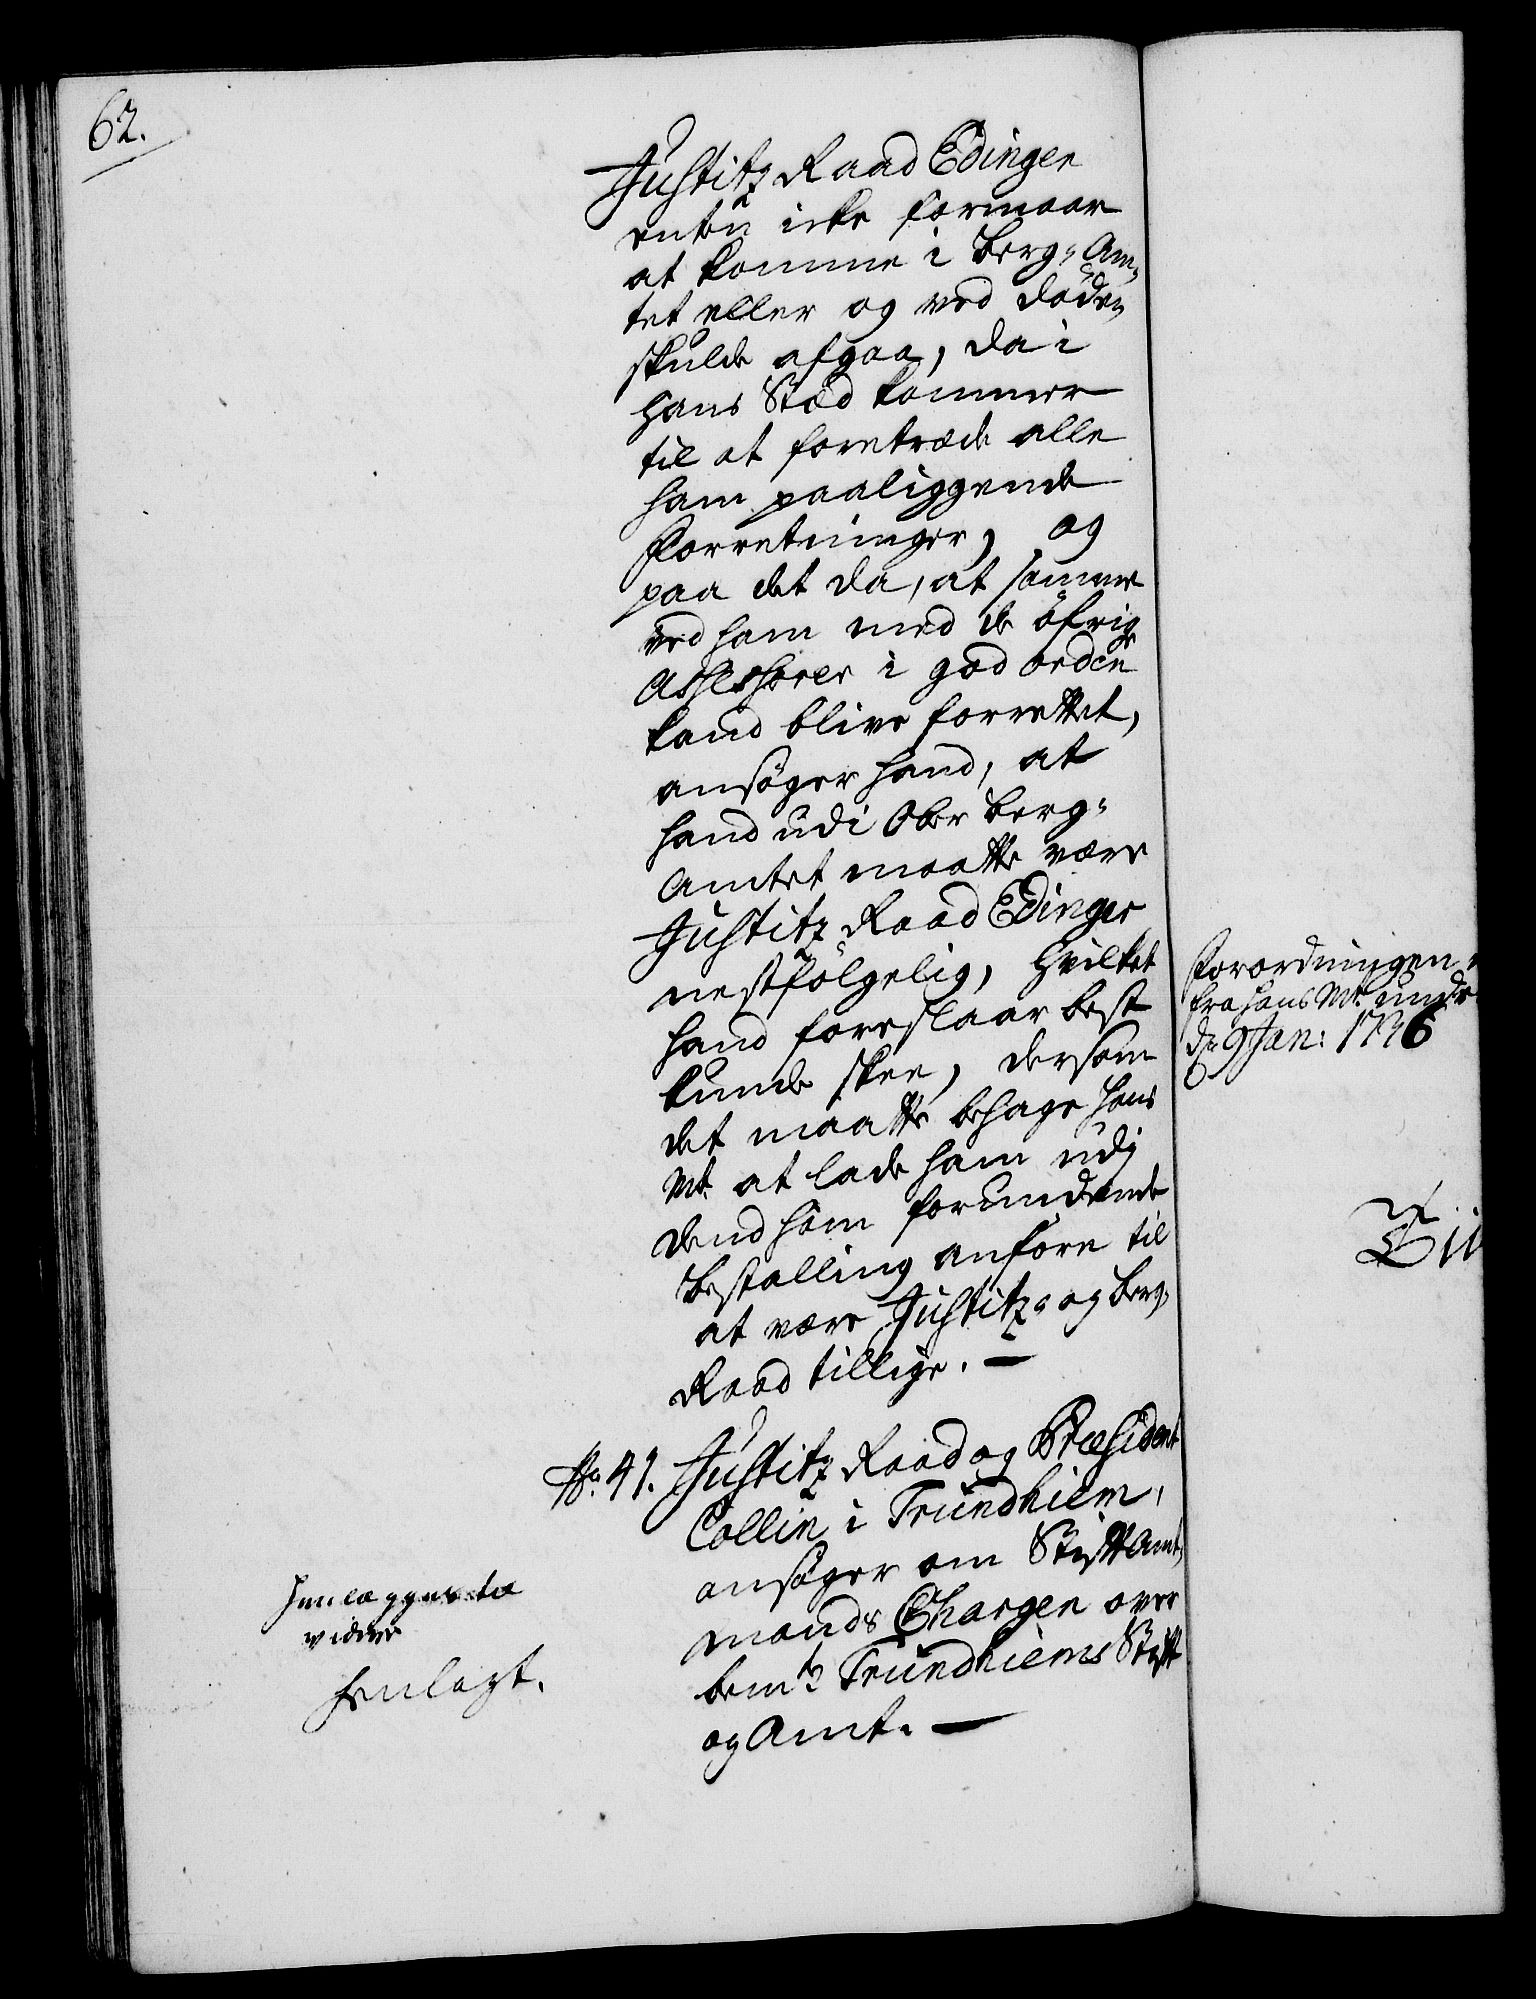 62.
Justitz Raad Edinger
enten icke formaar
at komme i Berg-Am-
tet eller og ved døden
skulde afgaa, da i
hans Stæd kommer
til at foretræde alle
ham paaliggende
Forretninger, og
paa det da, at samme
ved ham med de öfrige
Assessorer i god orden
kand blive forrettet,
ansøger hand, at
hand udi Ober Berg-
Amtet maatte være
Justitz Raad Edinger
nestfølgelig, hvilket
hand foreslaar best
kunde skee, dersom
det maatte behage hans
Mt. at lade ham udj
dend ham forundende
Bestalling anføre til
at være Justitz- og Berg-
Raad tillige. —
No. 41. Justitz Raad og Præsident
Collin i Trundhiem,
ansøger om Stiftamt-
mands Chargen over
bemte Trundhiems Stift
og Amt. —
Henlægges til
videre
Henlagt.
Forordningen
fra hans Mt. under
d. 9 Jan: 1736